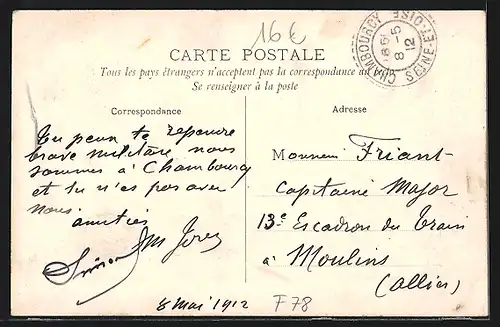 16 €
CHAMBOURCY
SEINE-ET-OISE
8 - 5
12
CARTE POSTALE
Tous les pays étrangers n'acceptent pas la correspondance au
Se renseigner à la poste
Correspondance
Adresse
Tu peux te
brave militaire nous
sommes à Chambourcy
et tu n'es pas avec
nous
amitiés
8 Mai 1912
Monsieur Friant
Capitaine Major
13e Escadron du Train
à Moulins
(Allier)
F78